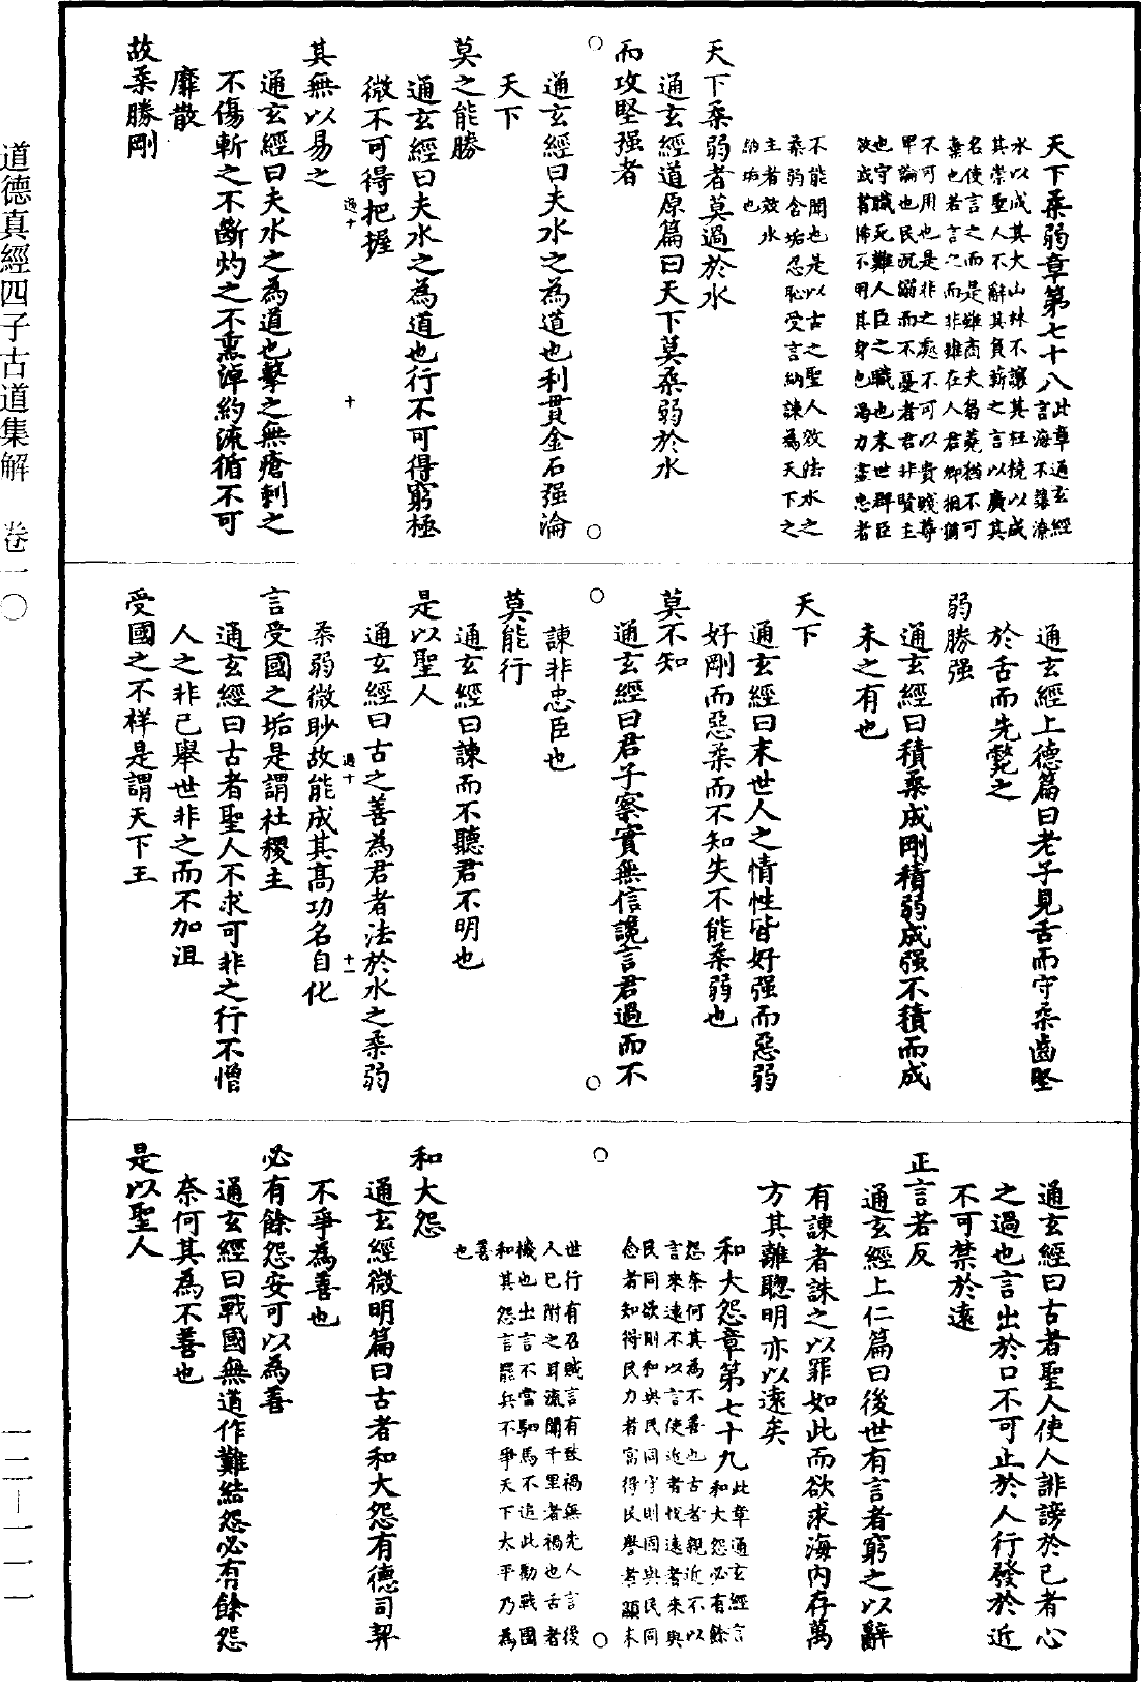 天下柔弱章第七十八
此章通玄經
言海不讓潦
水以成其大山林不讓其枉撓以成
其崇聖人不辭其負薪之言以廣其
名使言之而是雖商夫芻蕘猶不可
棄也若言之而非雖在人君卿相猶
不可用也是非之處不可以貴賤尊
卑論也民沉溺而不憂者君非賢主
也守職死難人臣之職也末世群臣
欲或者怖不用其身也竭力盡忠者
不能聞也是以古之聖人效法水之
柔弱含垢忍恥受言納諫為天下之
主者效水
納垢也
天下柔弱者莫過於水
通玄經道原篇曰天下莫柔弱於水
而攻堅强者
通玄經曰夫水之為道也利貫金石强淪
天下
莫之能勝
通玄經曰夫水之為道也行不可得窮極
微不可得把握
其無以易之
通玄經曰夫水之為道也擊之無瘡刺之
不傷斬之不斷灼之不熏淖約流循不可
靡散
故柔勝剛
通玄經上德篇曰老子見舌而守柔齒堅
於舌而先斃之
弱勝强
通玄經曰積柔成剛積弱成强不積而成
未之有也
天下
通玄經曰末世人之情性皆好强而惡弱
好剛而惡柔而不知失不能柔弱也
莫不知
通玄經曰君子察實無信讒言君過而不
諫非忠臣也
莫能行
通玄經曰諫而不聽君不明也
是以聖人
通玄經曰古之善為君者法於水之柔弱
柔弱微眇故能成其高功名自化
言受國之垢是謂社稷主
通玄經曰古者聖人不求可非之行不憎
人之非己舉世非之而不加沮
受國之不祥是謂天下王
通玄經曰古者聖人使人誹謗於己者心
之過也言出於口不可止於人行發於近
不可禁於遠
正言若反
通玄經上仁篇曰後世有言者窮之以辭
有諫者誅之以罪如此而欲求海內存萬
方其離聰明亦以遠矣
和大怨章第七十九
此章通玄經言
和大怨必有餘
怨奈何其為不善也古者親近不以
言來遠不以言使近者悅遠者來與
民同欲則和與民同守則固與民同
念者知得民力者富得民譽者顯末
世行有召賊言有致禍無先人言後
人已附之耳流聞千里者禍也舌者
機也出言不當駟馬不追此勸戰國
和其怨言罷兵不爭天下太平乃為
善
也
和大怨
通玄經微明篇曰古者和大怨有德司契
不爭為善也
必有餘怨安可以為善
通玄經曰戰國無道作難結怨必有餘怨
奈何其為不善也
是以聖人
道德真經四子古道集解 卷一〇
一二—一一一